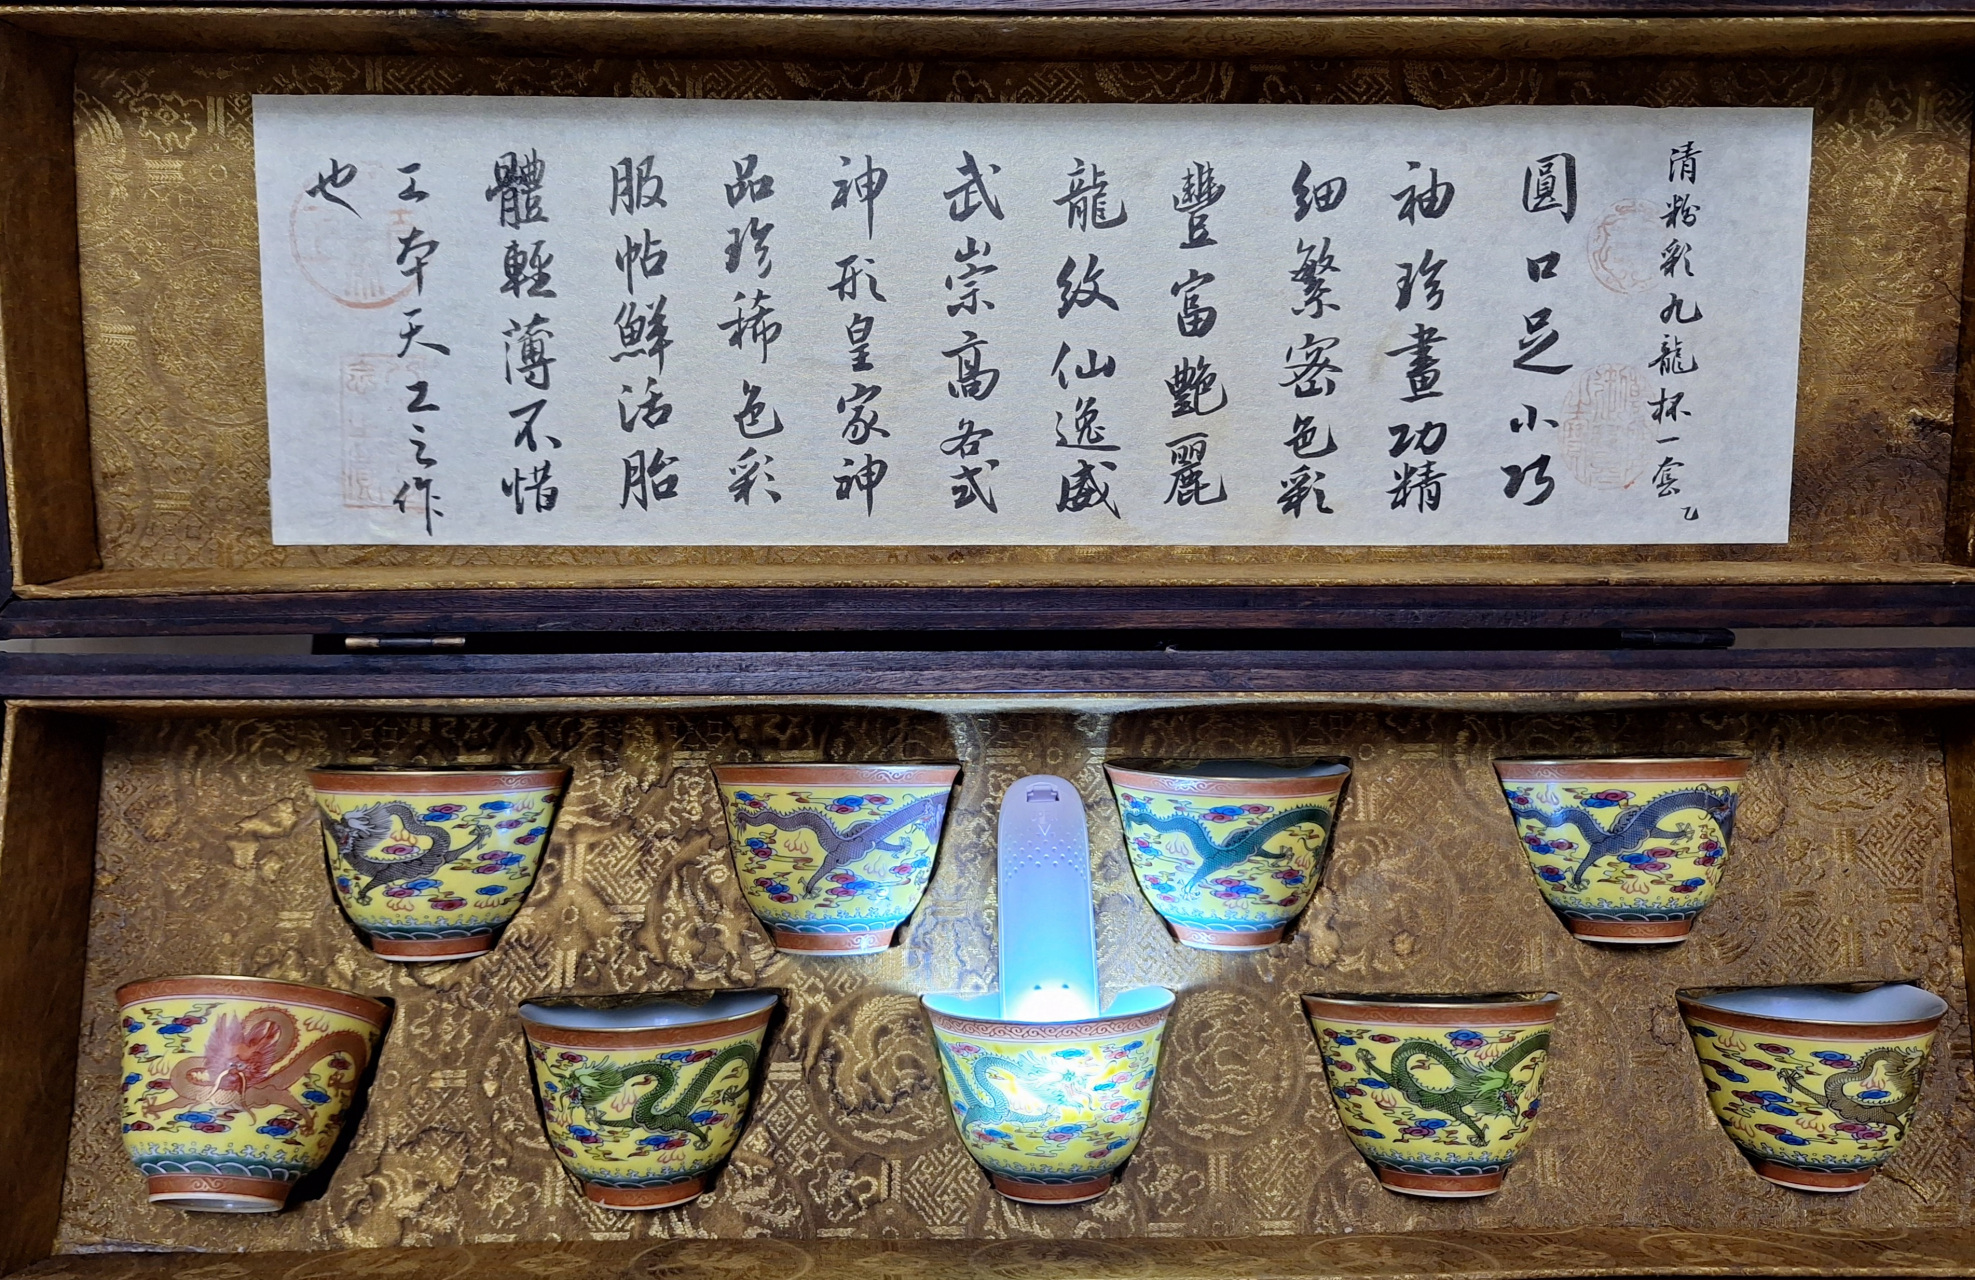 清粉彩九龍杯一套乙
圓口足小巧
袖珍畫功精
细繁密色彩
豐富艷麗
龍紋仙逸威
武崇高各式
神形皇家神
品珍稀色彩
服帖鮮活胎
體輕薄不惜
工本天工之作
也